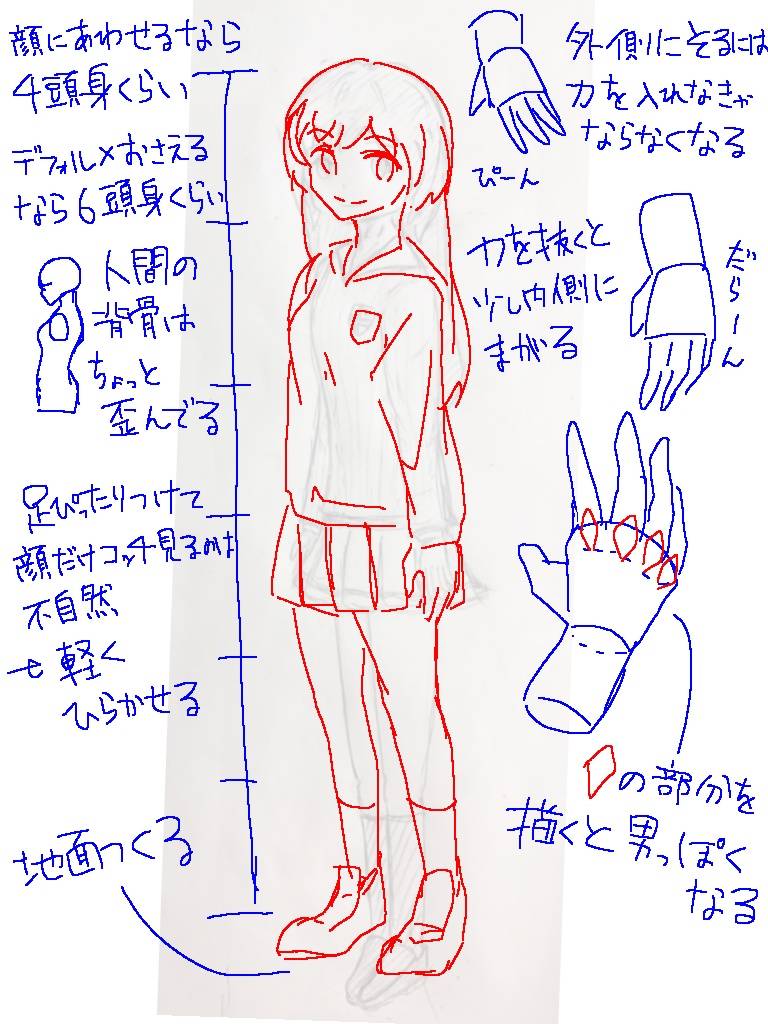 顔にあわせるなら
4頭身くらい
デフォルメおさえる
なら6頭身くらい
人間の
背骨は
ちょっと
歪んでる
足ぴったりつけて
顔だけコッチ見るのは
不自然
→軽く
ひらかせる
地面つくる
外側にそるには
力を入れなきゃ
ならなくなる
ぴーん
力を抜くと
少し内側に
まがる
だらーん
の部分を
描くと男っぽく
なる